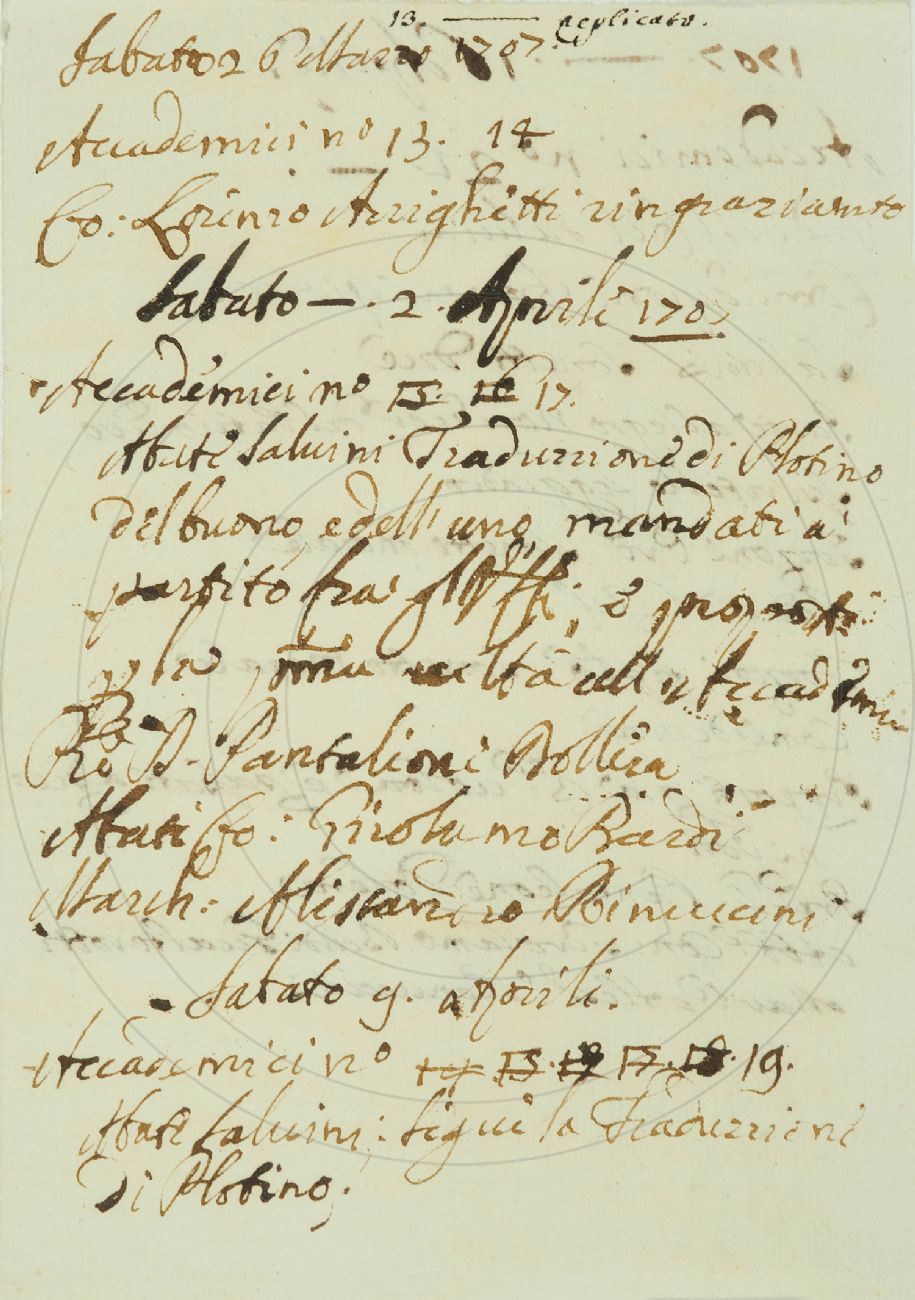 13. —— replicato.
Sabato 26 Marzo 1707.
Accademici n° 13. 14
Co: Lorenzo Arrighetti ringraziamto
Sabato — . 2. Aprile 1707
Accademici n° 15. 16 17.
Abate Salvini Traduzzione di Plotino
del buono, e dell' uno, mandati a'
partito fra' gl' ; e proposti
p la pma della Accademia
P. Pre D. Pantalioni Dollera
Abate Co: Girolamo Bardi
March: Alissandro Rinuccini
Sabato 9. Aprile.
Accademici n° 14 15. 16 17. 18. 19.
Abate Salvini; segue la Traduzzione
di Plotino;